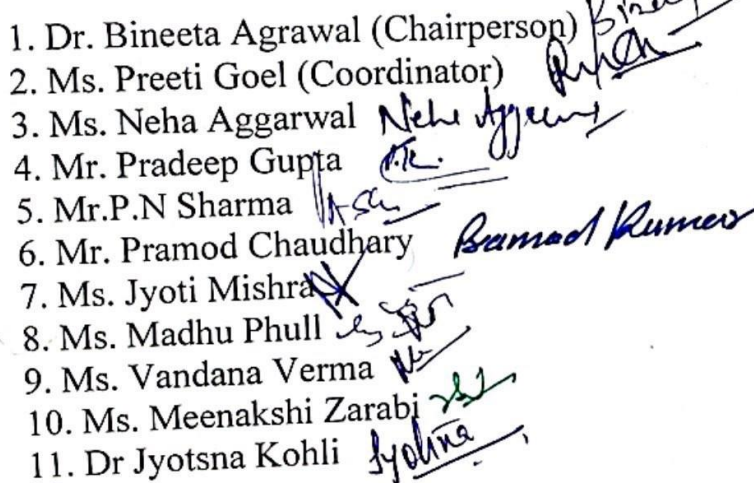 1. Dr. Bineeta Agrawal (Chairperson)
2. Ms. Preeti Goel (Coordinator)
3. Ms. Neha Aggarwal Neha Aggarwal
4. Mr. Pradeep Gupta
5. Mr.P.N Sharma
6. Mr. Pramod Chaudhary Pramod Kumar
7. Ms. Jyoti Mishra
8. Ms. Madhu Phull
9. Ms. Vandana Verma
10. Ms. Meenakshi Zarabi
11. Dr Jyotsna Kohli Jyotsna